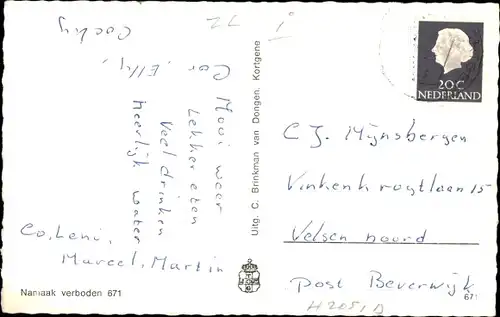 Mooi weer
Lekker eten
Veel drinken
Heerlijk water
Cor, Elly,
Cocky
Co, Leni,
Marcel, Martin
Namaak verboden 671
Uitg. C. Brinkman van Dongen, Kortgene
20 C
NEDERLAND
C J. Mijnsbergen
Vinkenkruytlaan 15
Velsen noord
post Beverwijk
671